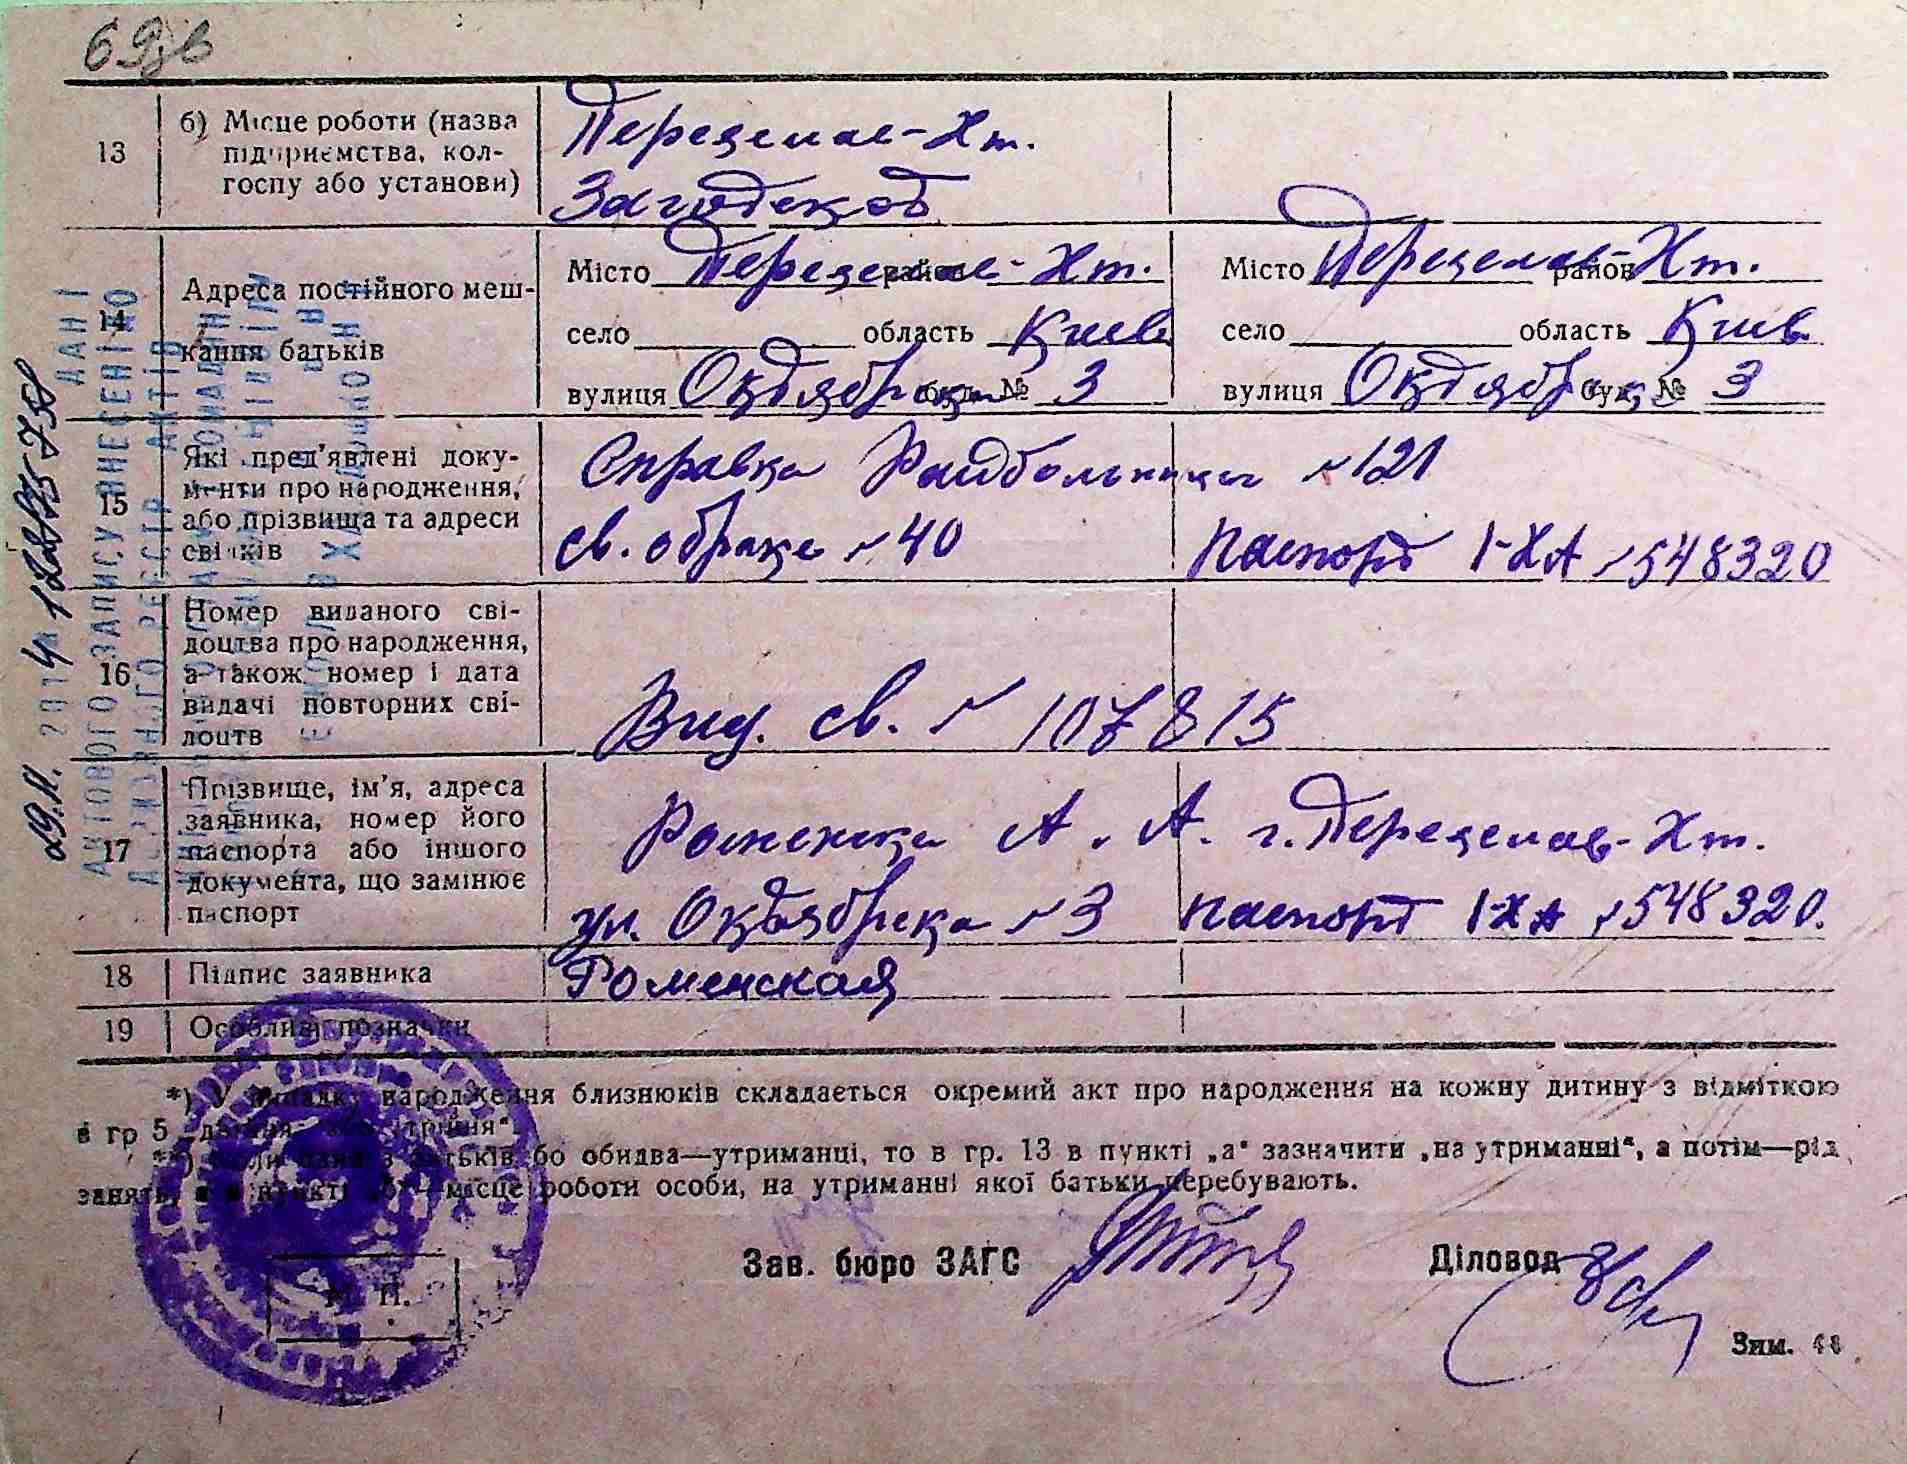 69зв
13 б) Місце роботи (назва
підприємства, кол-
госпу або установи)
Переяслав-Хм.
Заготскот
14 Адреса постійного меш-
кання батьків
Місто Переяслав-Хм. район
село область Киев
вулиця Октябрська буд. № 3
Місто Переяслав-Хм. район
село область Киев.
вулиця Октябрськ буд. № 3
15 Які пред'явлені доку-
менти про народження,
або прізвища та адреси
свідків
Справка Райбольницы №121
св. о браке №40 паспорт I-ХА №548320
16 Номер виданого сві-
доцтва про народження,
а також номер і дата
видачі повторних сві-
доцтв
Выд. св. № 107815
17 Прізвище, ім'я, адреса
заявника, номер його
паспорта або іншого
документа, що замінює
паспорт
А. А. г. Переяслав-Хм.
ул. Октябрска №3 паспорт I-ХА №548320.
18 Підпис заявника Роменская
19 Особливі позначки
*) У випадку народження близнюків складається окремий акт про народження на кожну дитину з відміткою
в гр 5 „двійня" або „трійня".
**) Коли один з батьків бо обидва—утриманці, то в гр. 13 в пункті „а" зазначити „на утриманні", а потім—рід
занять, а в пункті „б"—місце роботи особи, на утриманні якої батьки перебувають.
Зав. бюро ЗАГС
Діловод
М. П.
Зим. 48
ДАНІ
АКТОВОГО ЗАПИСУ ВНЕСЕНІ ДО
ДЕРЖАВНОГО РЕЄСТР АКТІВ
29.11. 2014